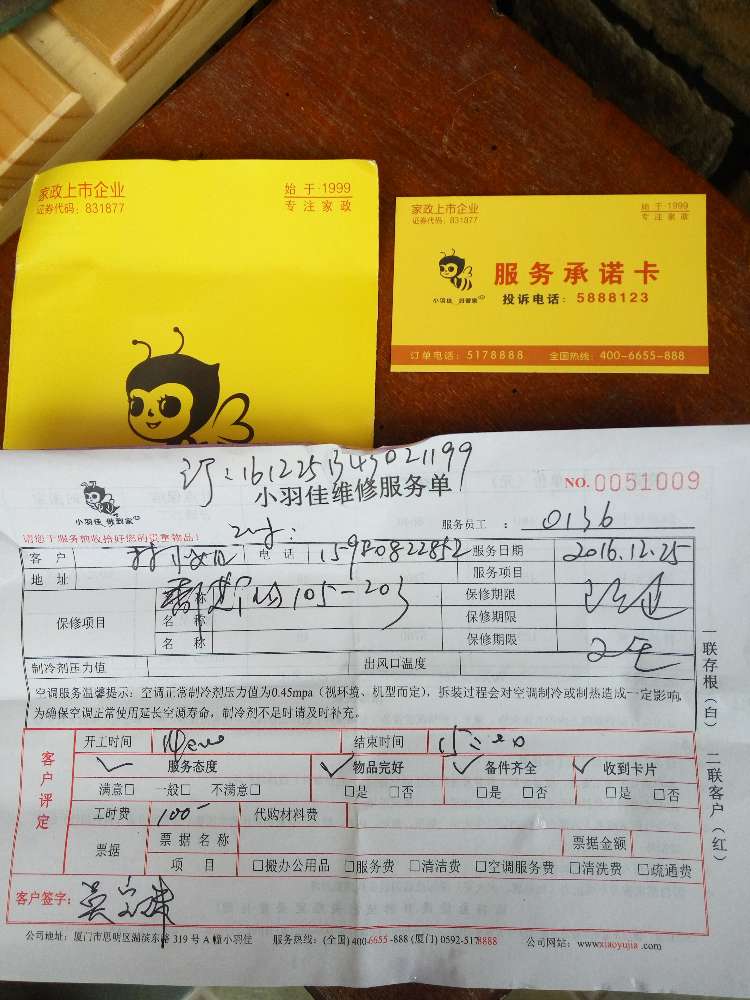 家政上市企业
证券代码：831877
始于1999
专注家政
家政上市企业
证券代码：831877
始于1999
专注家政
服务承诺卡
投诉电话：5888123
小羽佳
订单电话：5178888 全国热线：400-6655-888
小羽佳维修服务单
NO.0051009
小羽佳
请您于服务前收拾好您的贵重物品！
服务员工：0136
客户 电话 服务日期 2016.12.25
地址 服务项目
105-203
保修项目 名称 保修期限
名称 保修期限
名称 保修期限
制冷剂压力值 出风口温度
空调服务温馨提示：空调正常制冷剂压力值为0.45mpa（视环境、机型而定），拆装过程会对空调制冷或制热造成一定影响，
为确保空调正常使用延长空调寿命，制冷剂不足时请及时补充。
一联存根（白）
二联客户（红）
客户评定
开工时间 结束时间
服务态度 物品完好 备件齐全 收到卡片
满意□ 一般□ 不满意□ □是 □否 □是 □否 □是 □否
工时费 100 代购材料费
票据 票据名称 票据金额
项目 □搬办公用品 □服务费 □清洁费 □空调服务费 □清洗费 □疏通费
客户签字：
公司地址：厦门市思明区湖滨东路319号A幢小羽佳 服务热线：(全国) 400-6655-888 (厦门) 0592-5178888 公司网站：www.xiaoyujia.com